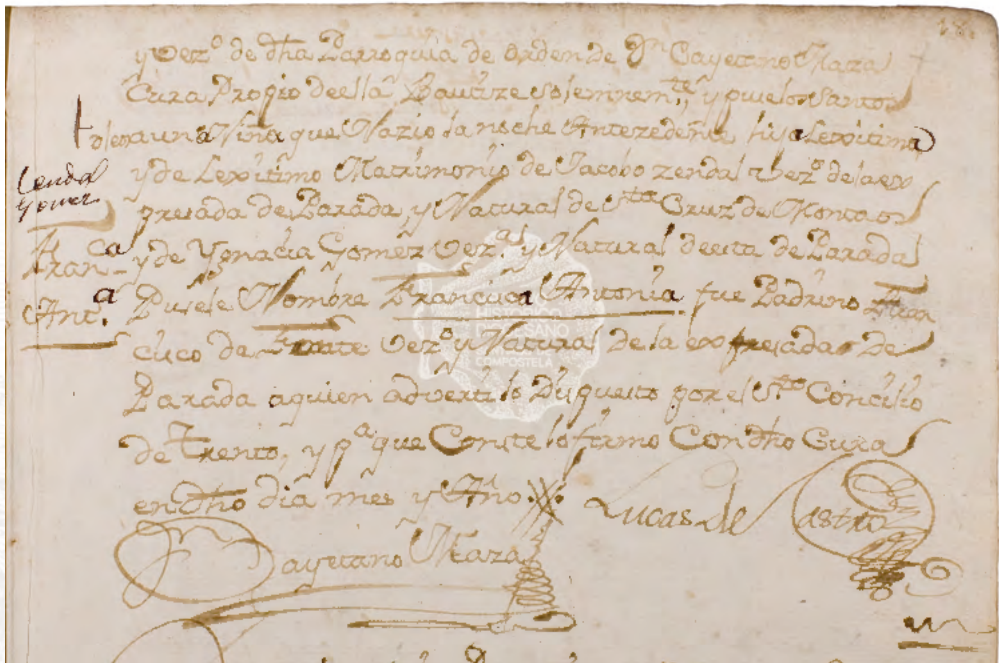 y Vez.º de dha Parroquia de orden de Dn Cayetano Maza
Cura Propio deella Bautize solemnem.te y puse los Santos
oleos a una Niña que Nazio la noche Antezedente hija Lexitima
y de Lexitimo Matrimonio de Jacobo zendal Vez.º de la ex
presada de Parada y Natural de S.ta Cruz de Montaos
y de Ygnacia Gomez Vez.ª y Natural de esta de Parada
Pusele Nombre Francisca Antonia fue Padrino Fran
cisco de Vez.º y Natural de la expresada de
Parada aquien adverti lo Dispuesto por el S.to Concilio
de Trento, y p.ª que Conste lo firmo Con dho Cura
en dho dia mes y Año.
Lucas de Castro
Cayetano Maza
Cendal
Gomez
Fran.ca
Ant.ª
HISTÓRICO
DIOCESANO
COMPOSTELA